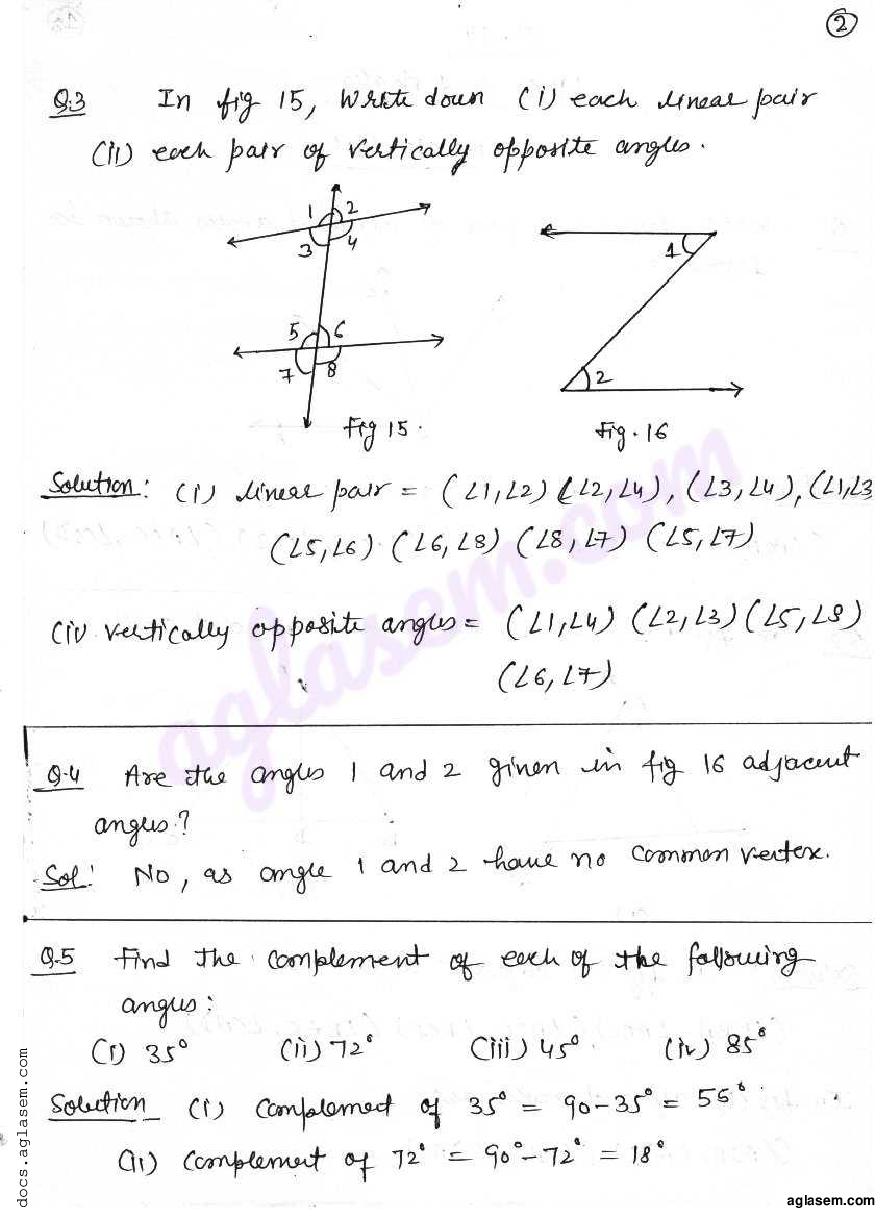 2
Q.3 In fig 15, Write down (i) each linear pair
(ii) each pair of vertically opposite angles.
1 2
3 4
5 6
7 8
Fig 15.
1
2
Fig. 16
Solution: (i) linear pair = (∠1,∠2) (∠2,∠4), (∠3,∠4), (∠1,∠3
(∠5,∠6) (∠6,∠8) (∠8,∠7) (∠5,∠7)
(ii) vertically opposite angles = (∠1,∠4) (∠2,∠3) (∠5,∠8)
(∠6,∠7)
Q.4 Are the angles 1 and 2 given in fig 16 adjacent
angles?
Sol: No, as angle 1 and 2 have no common vertex.
Q.5 Find the complement of each of the following
angles:
(i) 35° (ii) 72° (iii) 45° (iv) 85°
Solution (i) Complement of 35° = 90-35° = 55°
(ii) Complement of 72° = 90°-72° = 18°
aglasem.com
docs.aglasem.com
aglasem.com